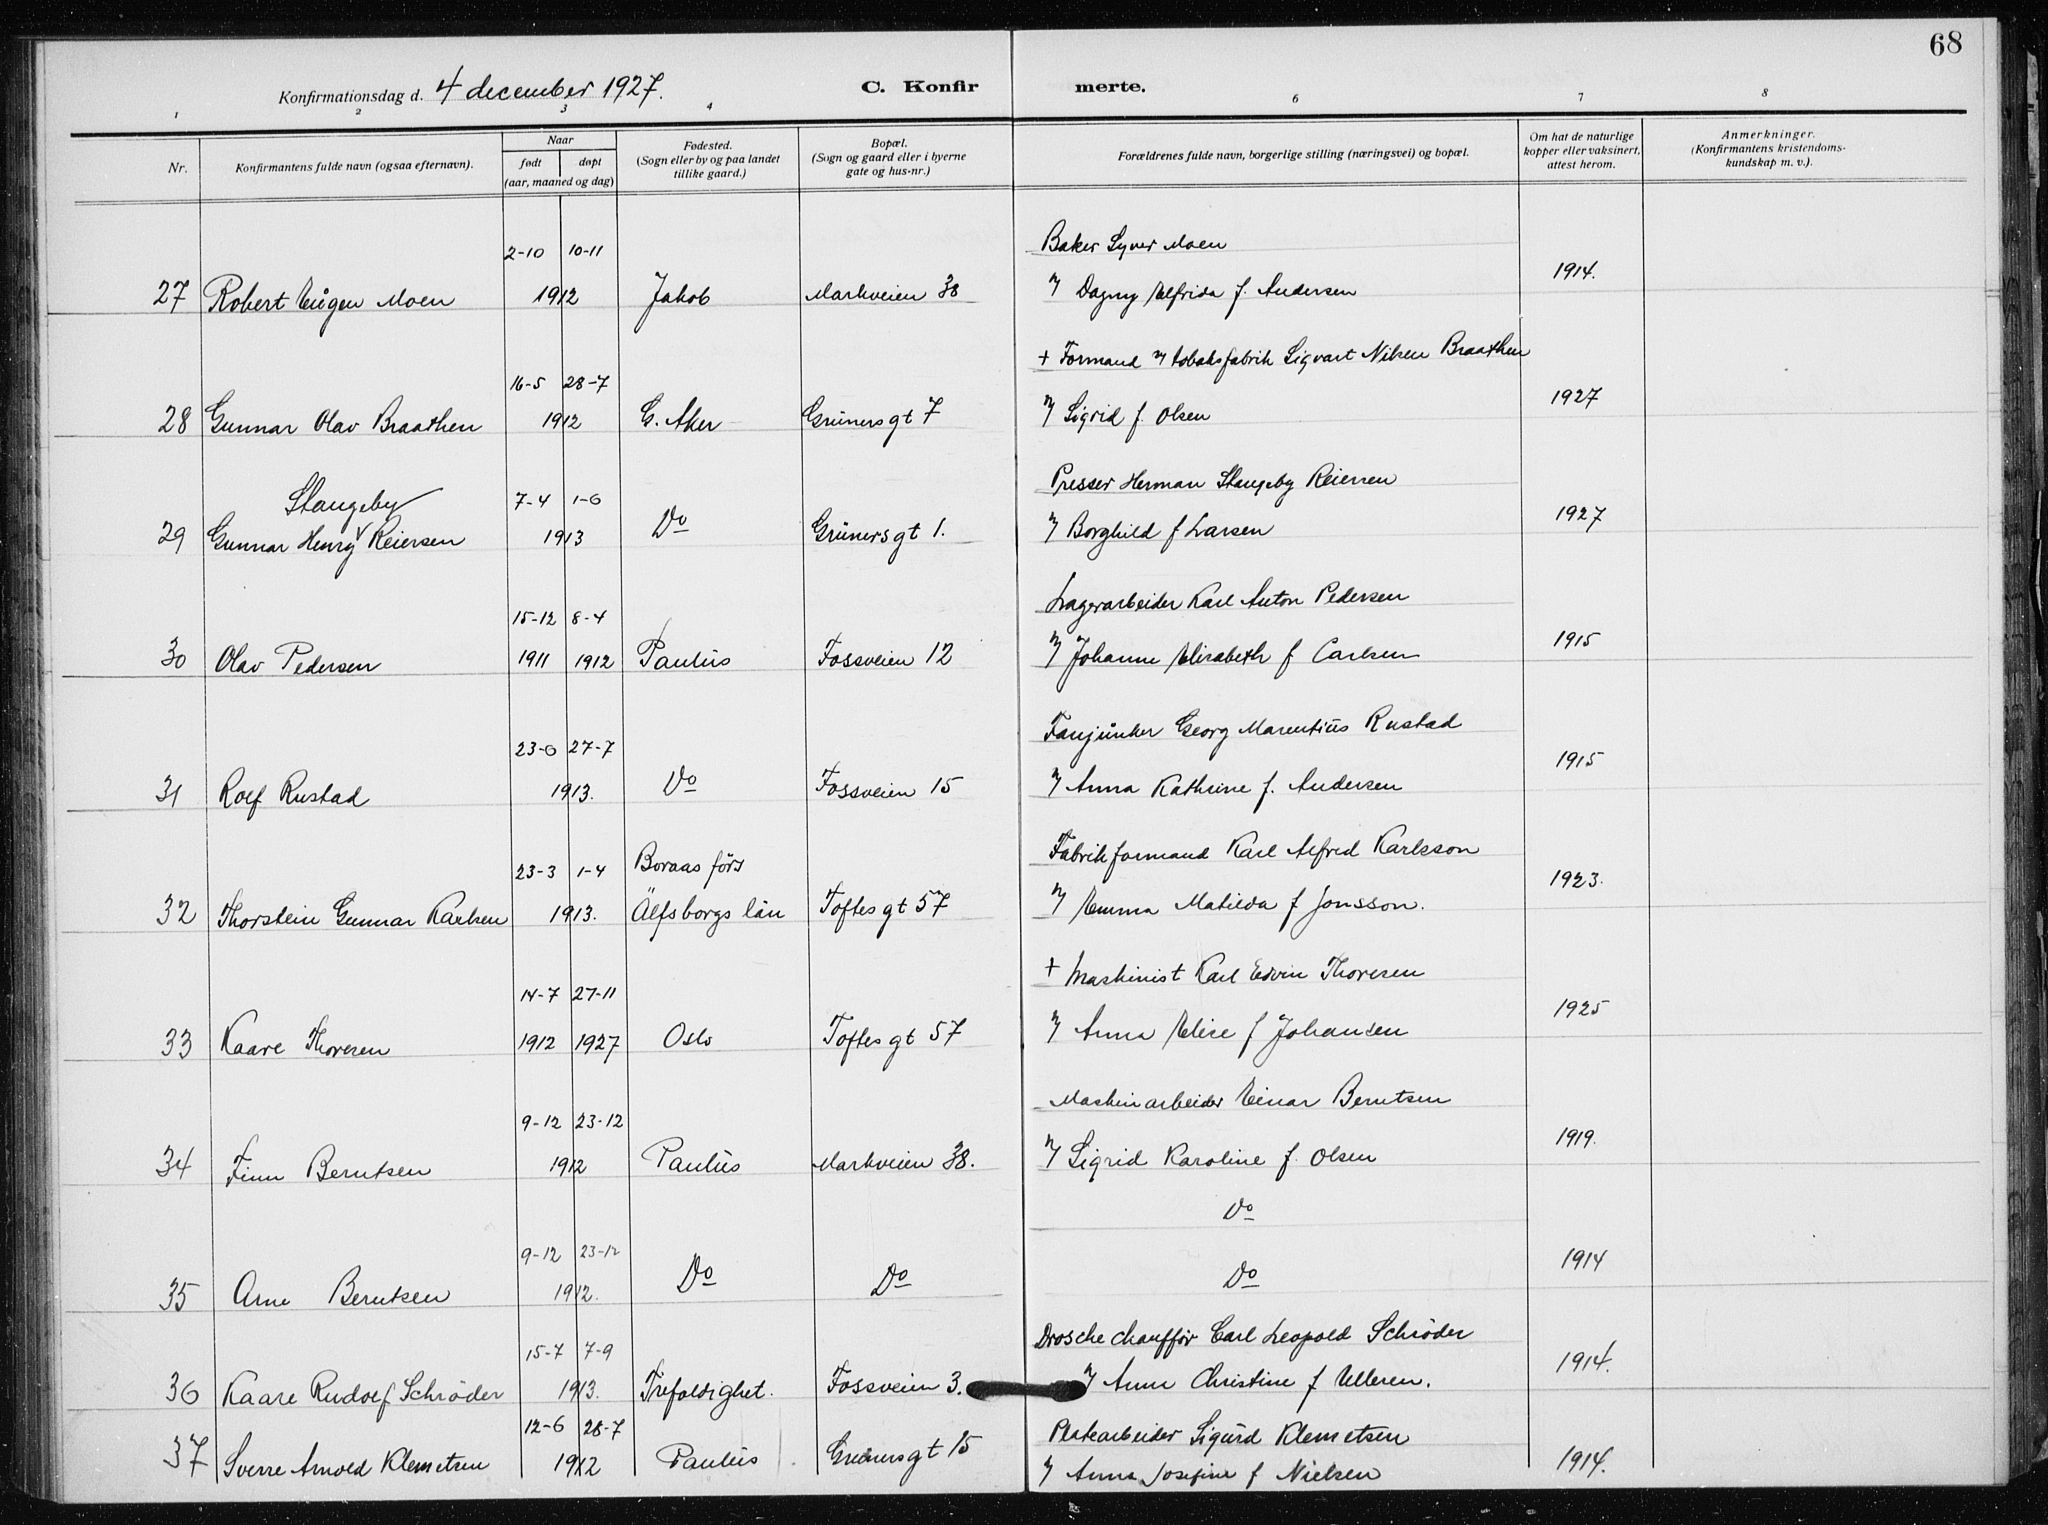 68
Konfirmationsdag d. 4 december 1927. C. Konfirmerte.
1 2 3 4 6 7 8
Nr. Konfirmantens fulde navn (ogsaa efternavn). Naar født døpt (aar, maaned og dag) Fødested. (Sogn eller by og paa landet tillike gaard.) Bopæl. (Sogn og gaard eller i byerne gate og hus-nr.) Forældrenes fulde navn, borgerlige stilling (næringsvei) og bopæl. Om hat de naturlige kopper eller vaksinert, attest herom. Anmerkninger. (Konfirmantens kristendomskundskap m. v.).
2-10 10-11 Baker Syver Moen
27 Robert Eugen Moen 1912 Jakob Markveien 38 Dagny Elfrida f. Andersen 1914.
+ Formand v/ tobaksfabrik Sigvart Nilsen Braathen
16-5 28-7
28 Gunnar Olav Braathen 1912 G. Aker Grünersgt 7 Sigrid f. Olsen 1927
Stangeby 7-4 1-6 Presser Herman Stangeby Reiersen
29 Gunnar Henry Reiersen 1913 Do Grünersgt 1. Borghild f Larsen 1927
15-12 8-4 Lagerarbeider Karl Anton Pedersen
30 Olav Pedersen 1911 1912 Paulus Fossveien 12 Johanne Elisabeth f Carlsen 1915
23-6 27-7 Fanejunker Georg Marentius Rustad
31 Rolf Rustad 1913. Do Fossveien 15 Anna Kathrine f. Andersen 1915
23-3 1-4 Boraas förs Fabrikformand Karl Alfred Karlsson
32 Thorstein Gunnar Karlsen 1913. Älfsborgs län Toftesgt 57 Emma Matilda f Jonsson. 1923.
14-7 27-11 + Maskinist Karl Edvin Thoresen
33 Kaare Thoresen 1912 1927 Oslo Toftesgt 57 Anna Elise f Johansen 1925
9-12 23-12 Maskinarbeider Einar Berntsen
34 Finn Berntsen 1912 Paulus Markveien 38. Sigrid Karoline f. Olsen 1919.
9-12 23-12 Do
35 Arne Berntsen 1912. Do Do Do 1914
15-7 7-9 Drosche chauffør Carl Leopold Schrøder
36 Kaare Rudolf Schrøder 1913. Trefoldighet. Fossveien 3. Anne Christine f Ulleren. 1914.
12-6 28-7 Platearbeider Sigurd Klemetsen
37 Sverre Arnold Klemetsen 1912 Paulus Grünersgt 15 Anna Josefine f Nielsen 1914.